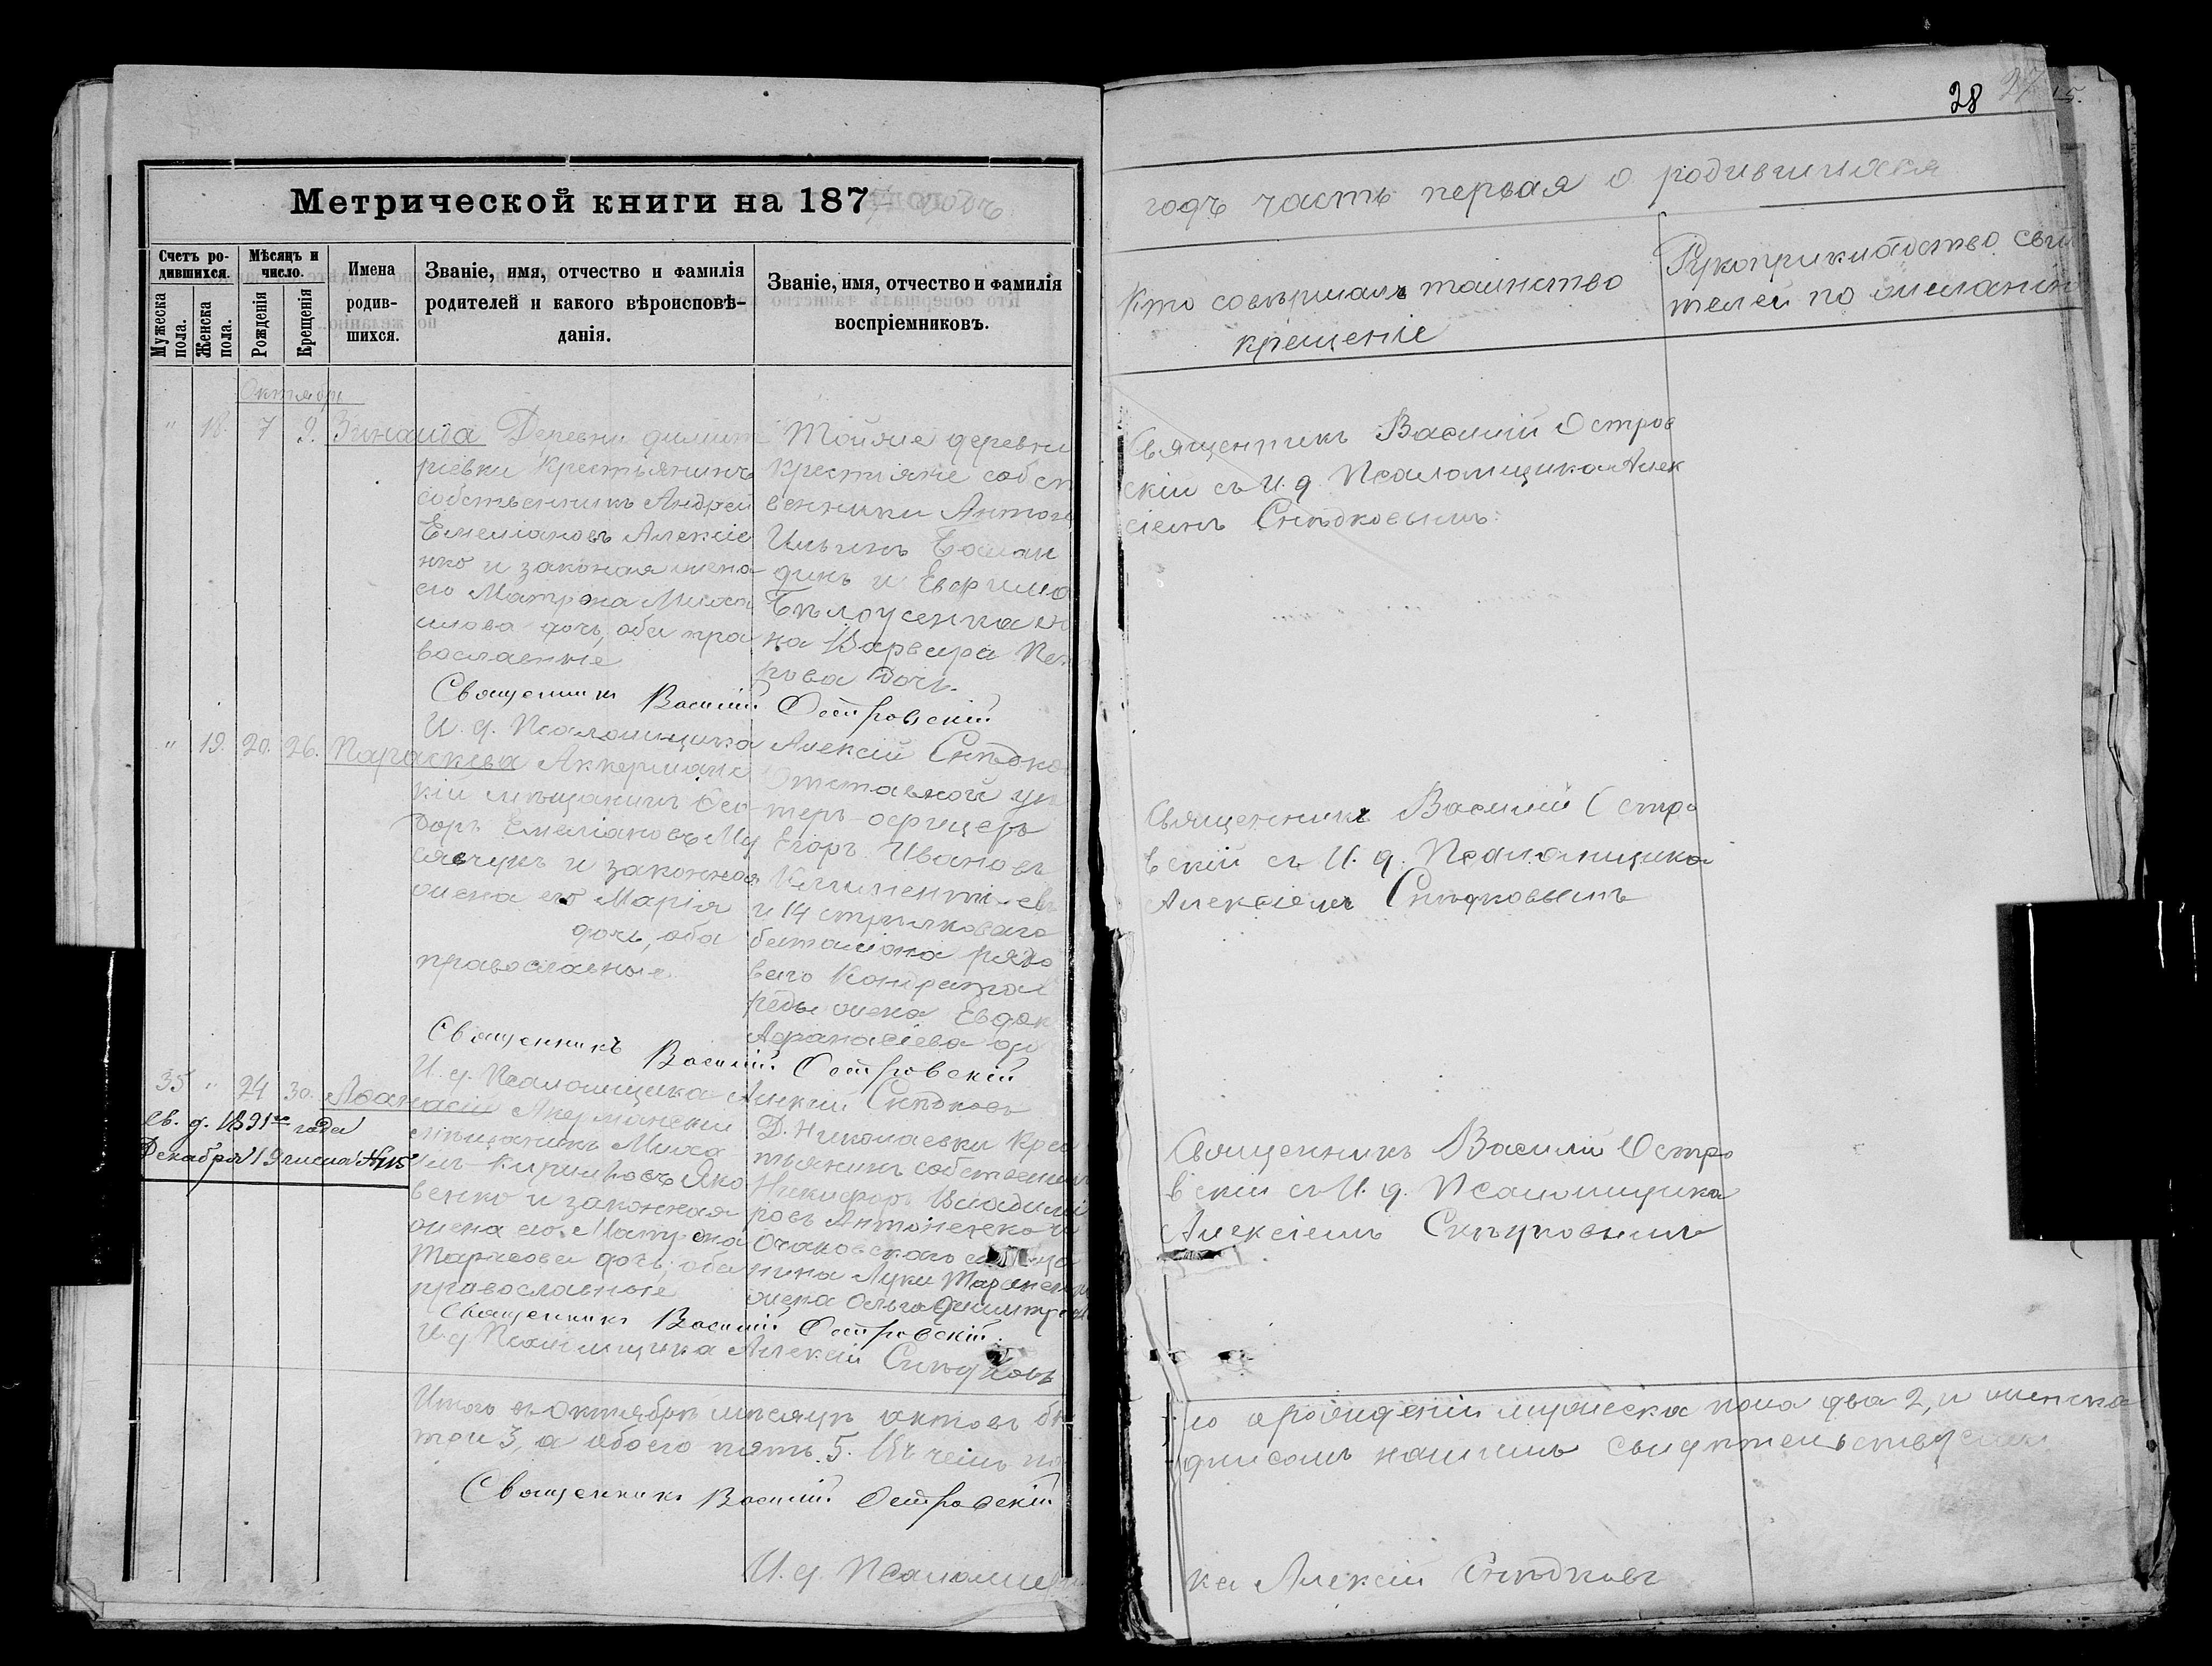 28
Метрической книги на 187
годъ часть первая о родившихся
Счетъ ро-
дившихся.
Мужеска пола.
Женска пола.
Мѣсяцъ и
число.
Рожденія
Крещенія
Имена
родив-
шихся.
Званіе, имя, отчество и фамилія
родителей и какого вѣроисповѣ-
данія.
Званіе, имя, отчество и фамилія
воспріемниковъ.
Кто совершалъ таинство
крещеніе
Рукоприкладство сви
телей по желанію
Октября
" 18. 7 9. Зинаида Деревни Димит
ріевки Крестьянинъ
собственникъ Андрей
Емеліановъ Алексіе
нко и законая жена
его Матрона Миха
илова дочь, оба пра
вославные
Тойже деревни
крестьяне собст
венники Антон
Ильинъ
и Евфима
Бѣлоусенка
на Варвара Пет
рова дочь.
Священникъ Василій Остров
скій съ И. д. Псаломщика Алек
сіемъ Снѣдковымъ.
Священникъ Василій Островскій
И. д. Псаломщика Алексій Снѣдко
" 19. 20. 26. Параскева Аккерманс
кій мѣщанинъ Ѳео-
доръ Емеліановъ
и законная
жена его Марія
дочь, оба
православные
Отставной ун
теръ-офицеръ
Егоръ Ивановъ
Климентіевъ
и 14 стрѣлковаго
баталіона рядо
ваго Кондрата
жена Евдок
Афанасіева до
Священникъ Василій Остро
вскій съ И. д. Псаломщика
Алексіемъ Снѣдковымъ
Священникъ Василій Островскій
И. д. Псаломщика Алексій Снѣдковъ
35 " 24 30. Аѳанасій Акерманскій
мѣщанинъ Миха
илъ Кириловъ Яко
венко и законная
жена его Матрона
дочь, оба
православные
Св. д. 1891 года
Декабря 19 числа №
Д. Николаевки Крес
тьянинъ собственникъ
Никифоръ Владимі
ровъ Антоненко и
Очаковскаго
нина Луки Таранен
жена Ольга Димитріев
Священникъ Василій Остро
вскій съ И. д. Псаломщика
Алексіемъ Снѣдковымъ
Священникъ Василій Островскій.
И. д. Псаломщика Алексій Снѣдковъ
Итого въ Октябрѣ мѣсяцѣ актовъ бы
ло о рожденіи мужеска пола два 2, и женска
три 3, а обоего пять. 5. Въ чемъ по
дписомъ нашимъ свидѣтельствуемъ
Священникъ Василій Островскій
И. д. Псаломщи
ка Алексій Снѣдковъ